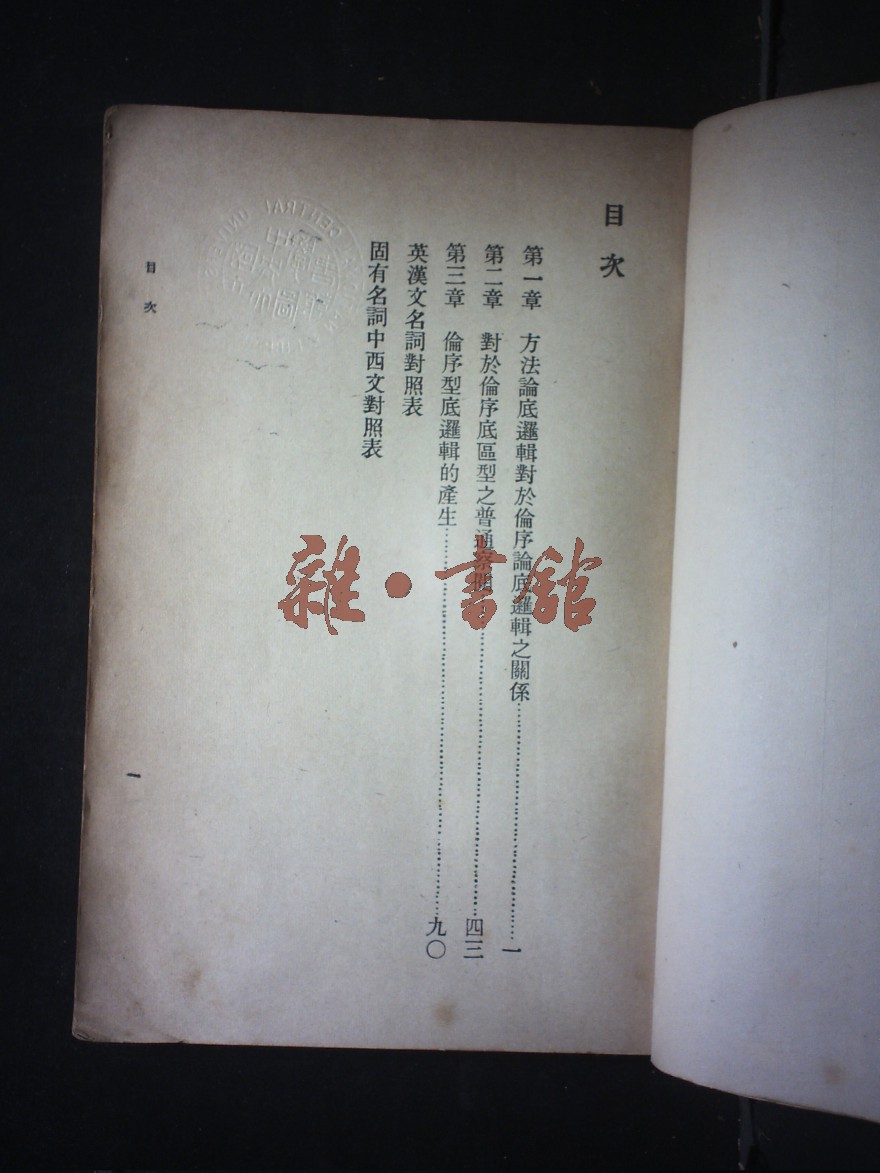 目次
第一章　方法論底邏輯對於倫序論底邏輯之關係……一
第二章　對於倫序底區型之普通察……四三
第三章　倫序型底邏輯的產生……九〇
英漢文名詞對照表
固有名詞中西文對照表
目次
一
雜·書舘
CENTRAL